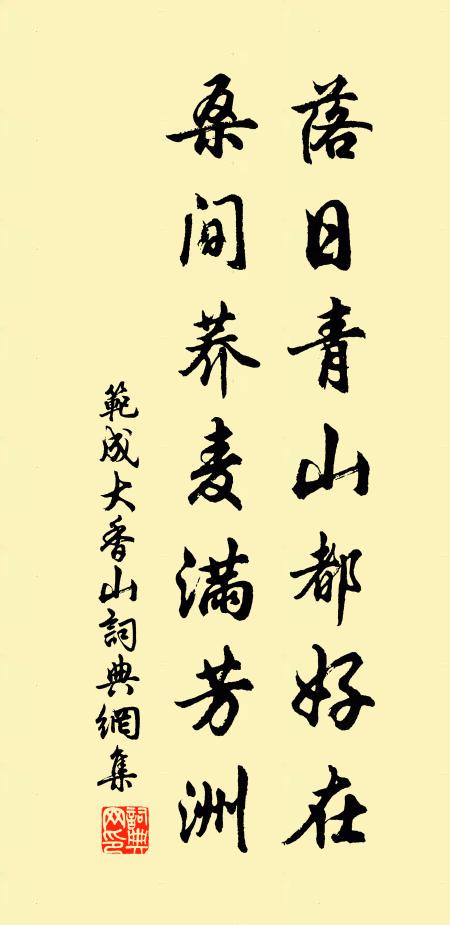 落日青山都好在
桑间荞麦满芳洲
範成大香山詞典網集
詞典网印